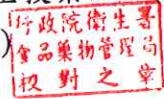 行政院衛生署
食品藥物管理局
校對之章
)